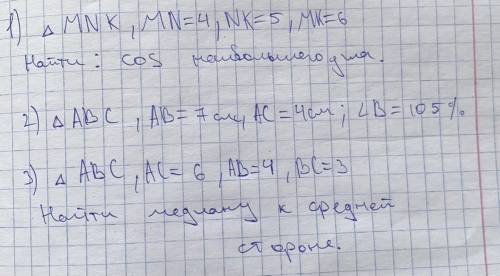 1) △ MNK, MN=4, NK=5, MK=6
Найти: cos наибольшего угла.
2) △ ABC, AB= 7 см, AC = 4 см; ∠B = 105%
3) △ ABC, AC= 6, AB=4, BC=3
Найти медиану к средней
стороне.